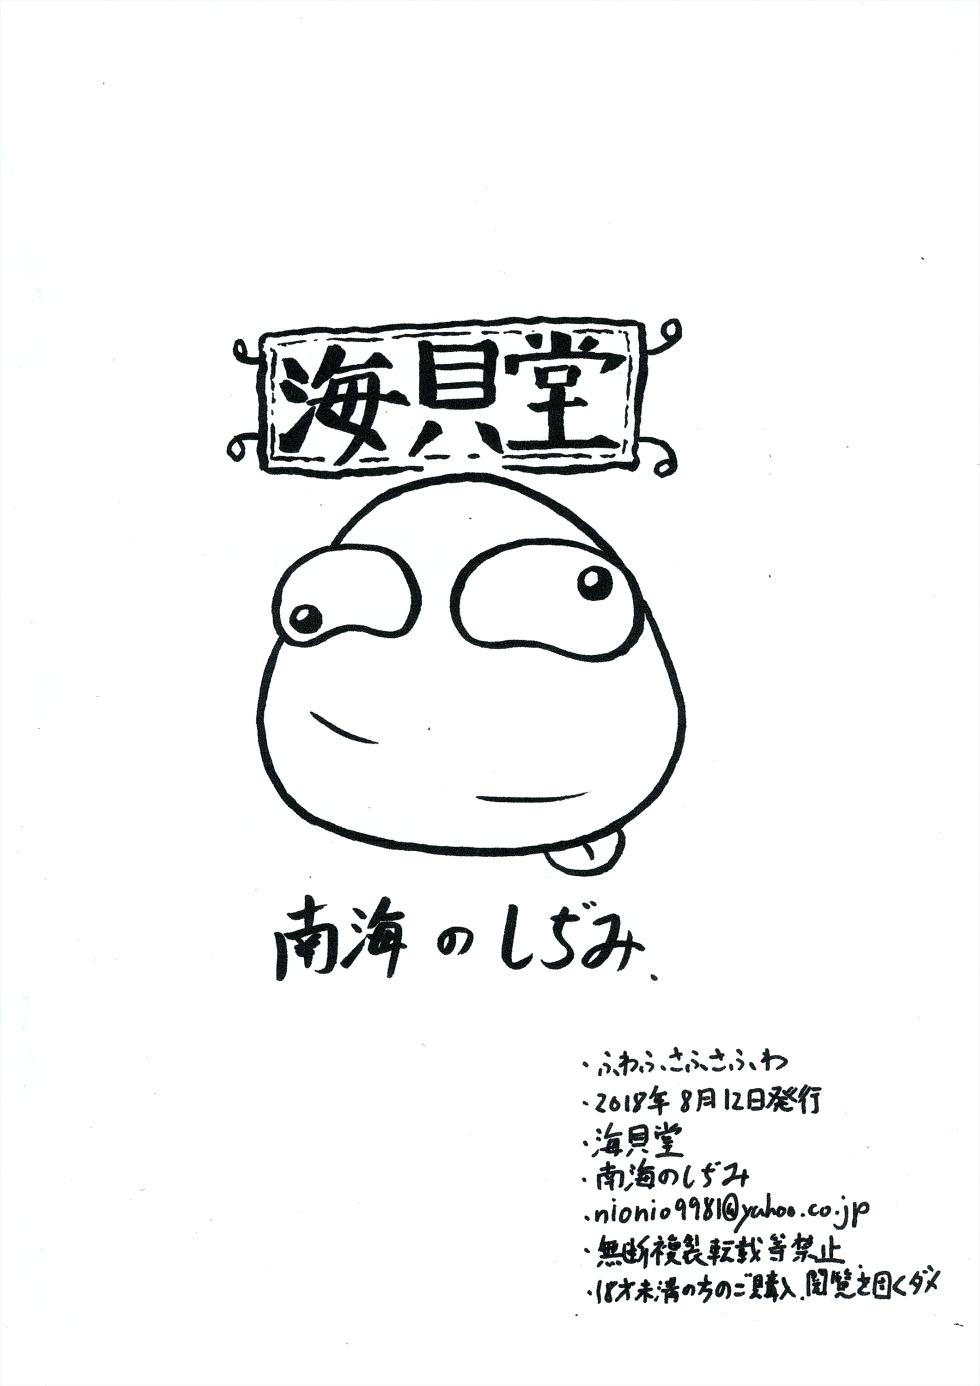 海貝堂
南海のしぢみ.
・ふわふさふさふわ
・2018年8月12日発行
・海貝堂
・南海のしぢみ
・nionio9981@yahoo.co.jp
・無断複製転載等禁止.
・18才未満の方のご購入.閲覧を固くダメ